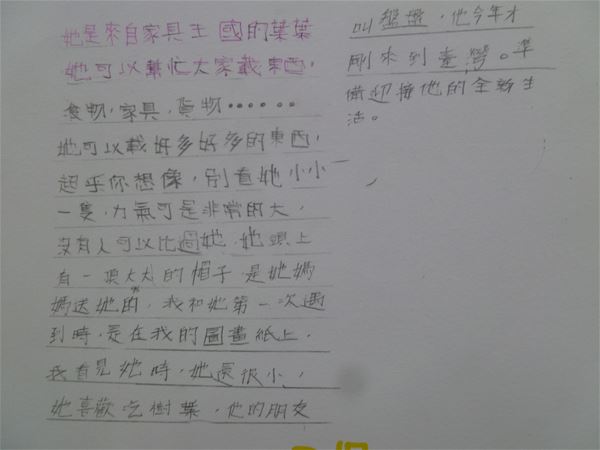 她是來自家具王國的葉葉
她可以幫忙大家載東西,
食物,家具,貨物······
她可以載好多好多的東西,
超乎你想像,別看她小小
一隻,力氣可是非常的大,
沒有人可以比過她,她頭上
有一頂大大的帽子,是她媽
媽送她的,我和她第一次遇
到時,是在我的圖畫紙上,
我看見她時,她還很小,
她喜歡吃樹葉,他的朋友
叫盤盤,他今年才
剛來到臺灣。準
備迎接他的全新生
活。